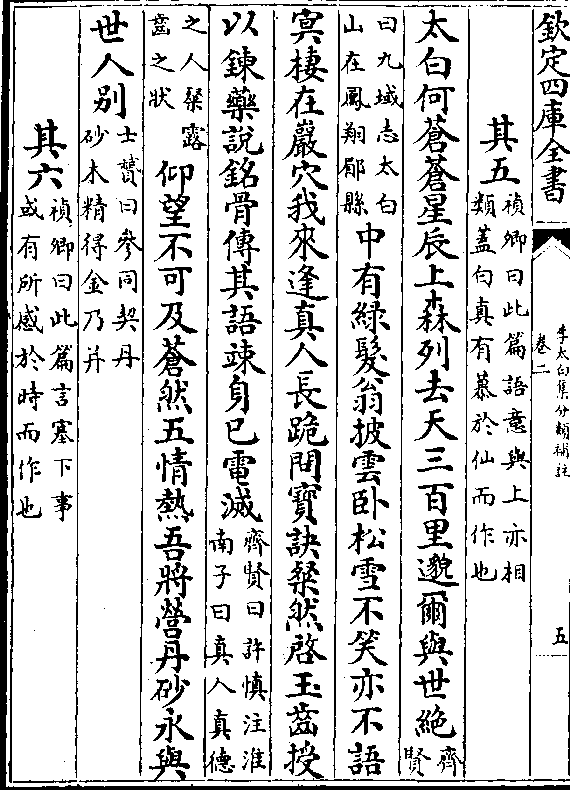 欽定四庫全書
李太白集分類補註
卷二
五
其五
禎卿曰此篇語意與上亦相
類蓋白真有慕於仙而作也
太白何蒼蒼星辰上森列去天三百里邈爾與世絶
齊
賢
曰九域志太白
山在鳳翔郿縣
中有緑髮翁披雲卧松雪不笑亦不語
㝠棲在巖穴我來逢真人長跪問寳訣粲然啓玉齒授
以鍊藥說銘骨傳其語竦身已電滅
齊賢曰許慎注淮
南子曰真人真德
之人粲露
齒之狀
仰望不可及蒼然五情熱吾將營丹砂永與
世人别
士贇曰參同契丹
砂木精得金乃并
其六
禎卿曰此篇言塞下事
或有所感於時而作也